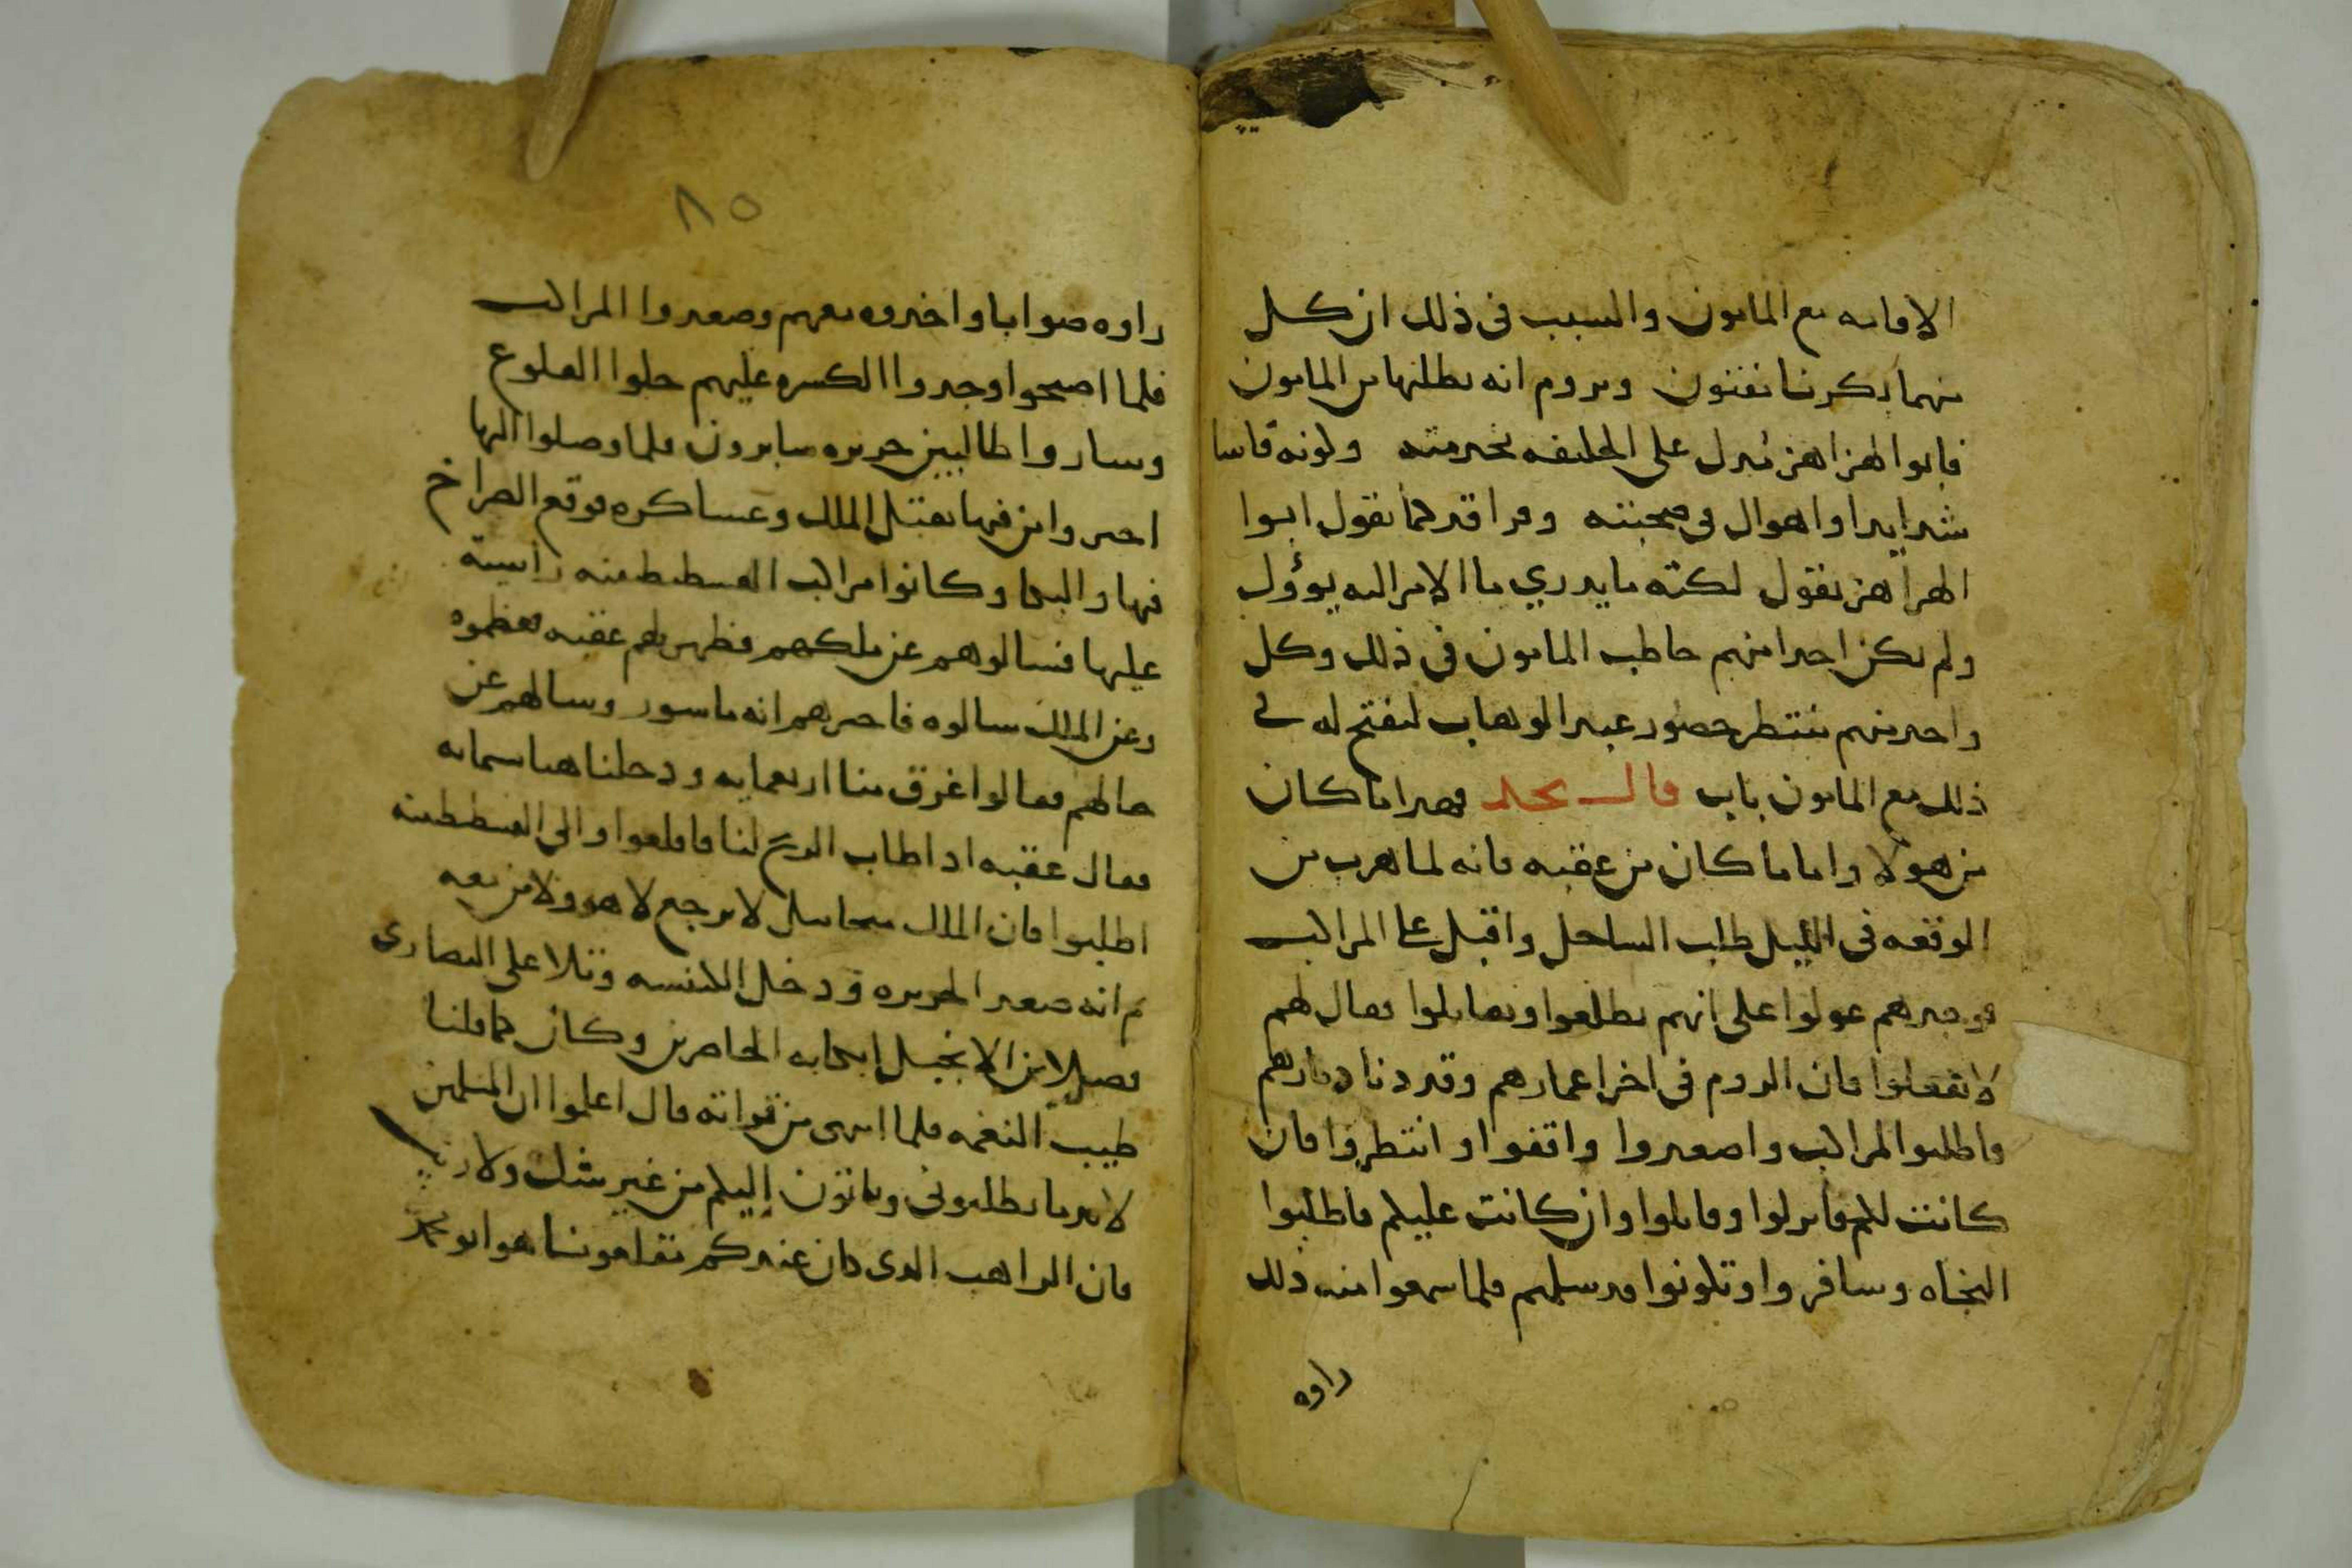 الاقامه مع المامون والسبب فى ذلك ان كل
منهما بكرنا مفتون ويروم انه يطلبها من المامون
فابوا الهزاهز يدل على الخليفه بخدمته وكونه قاسا
شدايدا واهوال فى محبته وهدا قد حما يقول ابوا
الهزاهز يقول لكنه ما يدري ما الامر اليه يوؤل
ولم يكن احدا منهم خاطب المامون فى ذلك وكل
واحد منهم ينتظر حضور عبد الوهاب ليفتح له فى
ذلك مع المامون باب قال نجد فهدا ما كان
من هولا واما ما كان من عقبه فانه لما هرب من
الوقعه فى الليل طلب الساحل واقبل على المراكب
فوجدهم عولوا على انهم يطلعوا ويقاتلوا فقال لهم
لا تفعلوا فان الروم فى اخر اعمارهم وقد دنا دمارهم
فاطلبوا المراكب واصعدوا واقفوا وانتظروا فان
كانت لكم فانزلوا وقاتلوا وان كانت عليكم فاطلبوا
النجاه وسافروا وتكونوا قد سلمتم فلما سمعوا منه ذلك
راوه
٨٥
راوه صوابا واخدوه معهم وصعدوا المراكب
فلما اصبحوا وجدوا الكسره عليهم حلوا القلوع
وساروا طالبين جزيره سابرون فلما وصلوا اليها
اخبروا من فيها بقتل الملك وعساكره فوقع الصراخ
فيها والبكا وكانوا مراكب القسطنطينه راسيه
عليها فسالوهم عن ملكهم فظهر لهم عقبه فعظموه
وعن الملك سالوه فاخبرهم انه ماسور وسالهم عن
حالهم فقالوا غرق منا اربعمايه ودخلنا هنا ستمايه
فقال عقبه ادا طاب الريح لنا فاقلعوا والى القسطنطينه
اطلبوا فان الملك ميخاييل لا يرجع لا هو ولا من معه
ثم انه صعد الجزيره ودخل الكنيسه وتلا على النصارى
فصلا من الانجيل ابكا به الحاضرين وكان كما قلنا
طيب النغمه فلما انتهى من قراته قال اعلموا ان المسلمين
لا بد ما يطلبوني وياتون اليكم من غير شك ولا ريب
فان الراهب الدى كان عندكم بقلعونسا هو ابو محمد